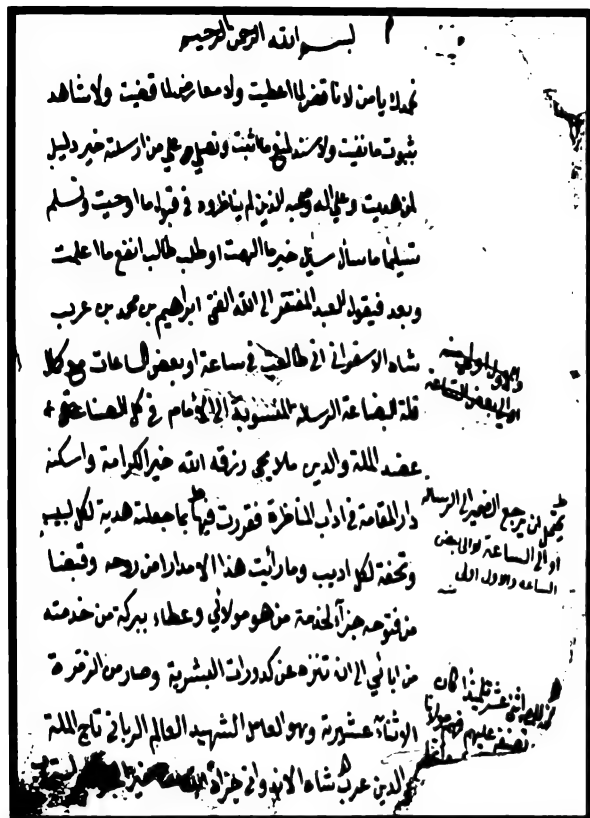 بسم الله الرحمن الرحيم
نحمدك يا من لا ناقض لما اعطيت ولا معارض لما قضيت ولا شاهد
بثبوت ما نفيت ولا سند لمنع ما اثبت ونصلي على من ارسلته خير دليل
لمن هديت وعلى اله وصحبه الذين لم يناظروه في قبول ما اوحيت ونسلم
تسليما ما سأل سايل خير ما الهمت او طلب طالب انفع ما اعلمت
وبعد فيقول العبد المفتقر الى الله الغني ابراهيم بن محمد بن عرب
شاه الاسفرايني اني طالعت في ساعة او بعض الساعات مع كمال
قلة البضاعة الرسالة المنسوبة الى الامام في كل الصناعة
عضد الملة والدين رزقه الله خير الكرامة واسكنه
دار المقامة في اداب المناظرة فقررت فيها ما جعلته هدية لكل لبيب
وتحفة لكل اديب وما رأيت هذا الا مدادا من روحه وقبضا
من فتوحه جزاء لخدمة من هو مولائي وعطاء ببركة من خدمته
من ابائي الى ان تنزه عن كدورات البشرية وصار من الزفرة
الاثنا عشرية وهو العامل الشهيد العالم الرباني تاج الملة
والدين عرب شاه جزاه الله خير
والاول اولى منه
او الى بعض الساعة
يحتمل ان يرجع الضمير الى الرسالة
او الى الساعة او الى بعض
الساعة والاول اولى
منه
اثنى عشر تلميذا كان